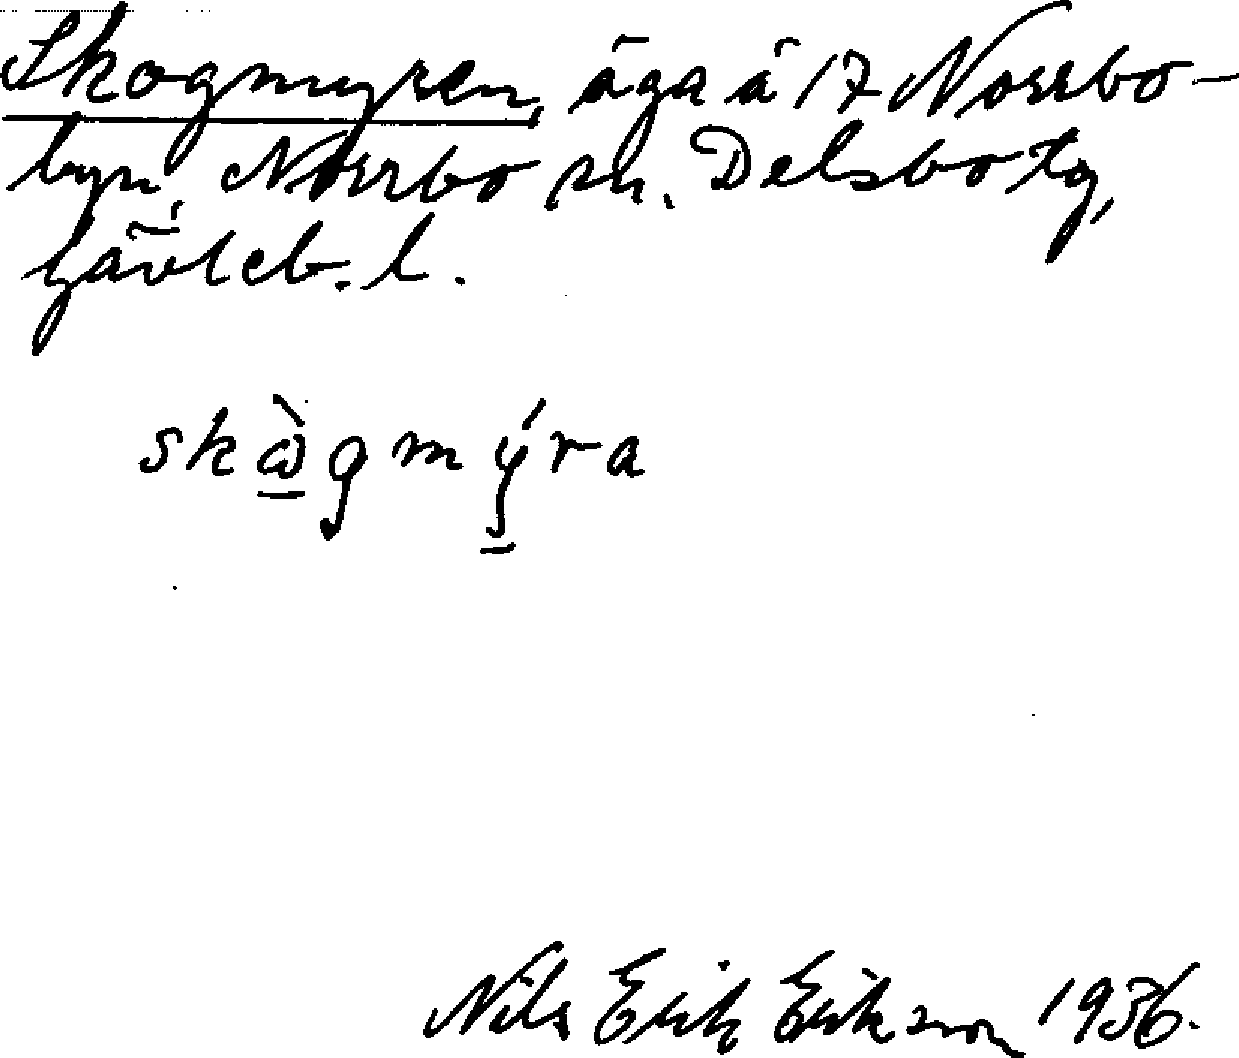 Skogmyren, äga å 17 Norrbo-
byn, Norrbo sn. Delsbo tg,
Gävleb. l.
skὼ̲gmý̲ra
Nils Erik Erikson 1936.